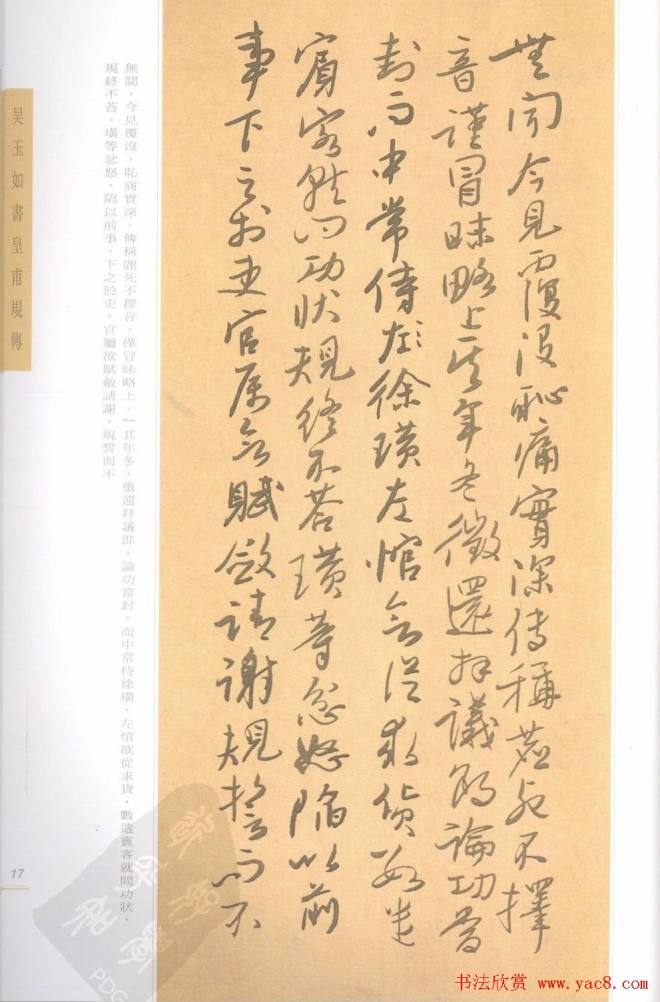 無聞今見覆沒恥痛實深傳稱鹿死不擇
音謹冒昧略上其年冬徵還拜議郎論功當
封而中常侍左徐璜左悺欲從求貨數遣
賓客就問功狀規終不荅璜等忿怒陷以前
事下之於吏官屬欲賦斂請謝規誓而不
無聞，今見覆沒，恥痛實深。傳稱鹿死不擇音，僅冒昧略上。』其年冬，徵還拜議郎。論功當封。而中常侍徐璜，左悺欲從求貨，數遣賓客就問功狀，
規終不荅。璜等忿怒，陷以前事，下之於吏。官屬欲賦斂請謝，規誓而不
吴玉如書皇甫規傳
17
PDG
书法欣赏 www.yac8.com